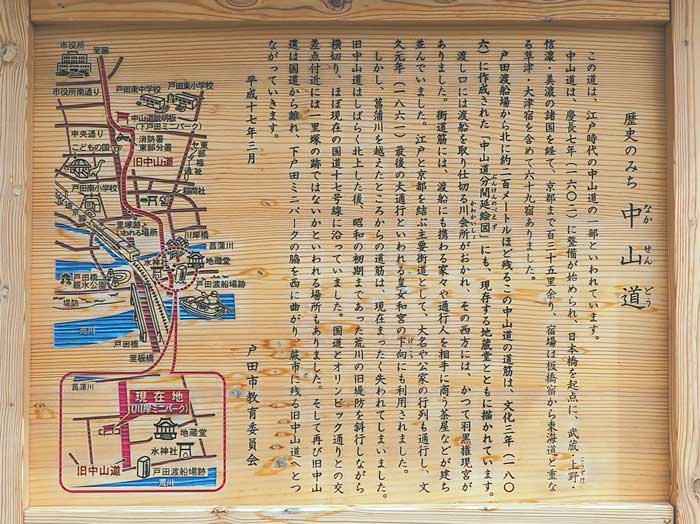 歴史のみち 中山道
なか せん どう
この道は、江戸時代の中山道の一部といわれています。
中山道は、慶長七年（一六〇二）に整備が始められ、日本橋を起点に、武蔵・上野・
こうずけ
信濃・美濃の諸国を経て、京都まで百三十五里余り、宿場は板橋宿から東海道と重な
る草津・大津宿を含めて六十九宿ありました。
戸田渡船場から北に約二百メートルほど残るこの中山道の道筋は、文化三年（一八〇
六）に作成された「中山道分間延絵図」にも、現存する地蔵堂とともに描かれています。
ぶんけんのべえず
渡し口には渡船を取り仕切る川会所がおかれ、その西方には、かつて羽黒権現宮が
かわかいしょ
ありました。街道筋には、渡船にも携わる家々や通行人を相手に商う茶屋などが建ち
並んでいました。江戸と京都を結ぶ主要街道として、大名や公家の行列も通行し、文
久元年（一八六一）最後の大通行といわれる皇女和宮の下向にも利用されました。
げこう
しかし、菖蒲川を越えたところからの道筋は、現在まったく失われてしまいました。
旧中山道はしばらく北上した後、昭和の初期まであった荒川の旧堤防を斜行しながら
横切り、ほぼ現在の国道十七号線に沿っていました。国道とオリンピック通りとの交
差点付近には一里塚の跡ではないかといわれる場所もありました。そして再び旧中山
道は国道から離れ、下戸田ミニパークの脇を西に曲がり、蕨市に残る旧中山道へとつ
ながっていきます。
平成十七年三月
戸田市教育委員会
市役所
至蕨
市役所南通り
戸田東中学校
戸田東小学校
中山道説明板
（下戸田ミニパーク）
中央通り
消防署
東部分署
こどもの国
旧中山道
東部福祉
戸田南小学校
稲荷社
一里塚跡と
いわれる場所
川岸橋
菖蒲川
水神社
地蔵堂
戸田渡船場跡
戸田橋
親水公園
堤防
荒川
戸田橋
至板橋
菖蒲川
現在地
（川岸ミニパーク）
地蔵堂
水神社
旧中山道
戸田渡船場跡
荒川